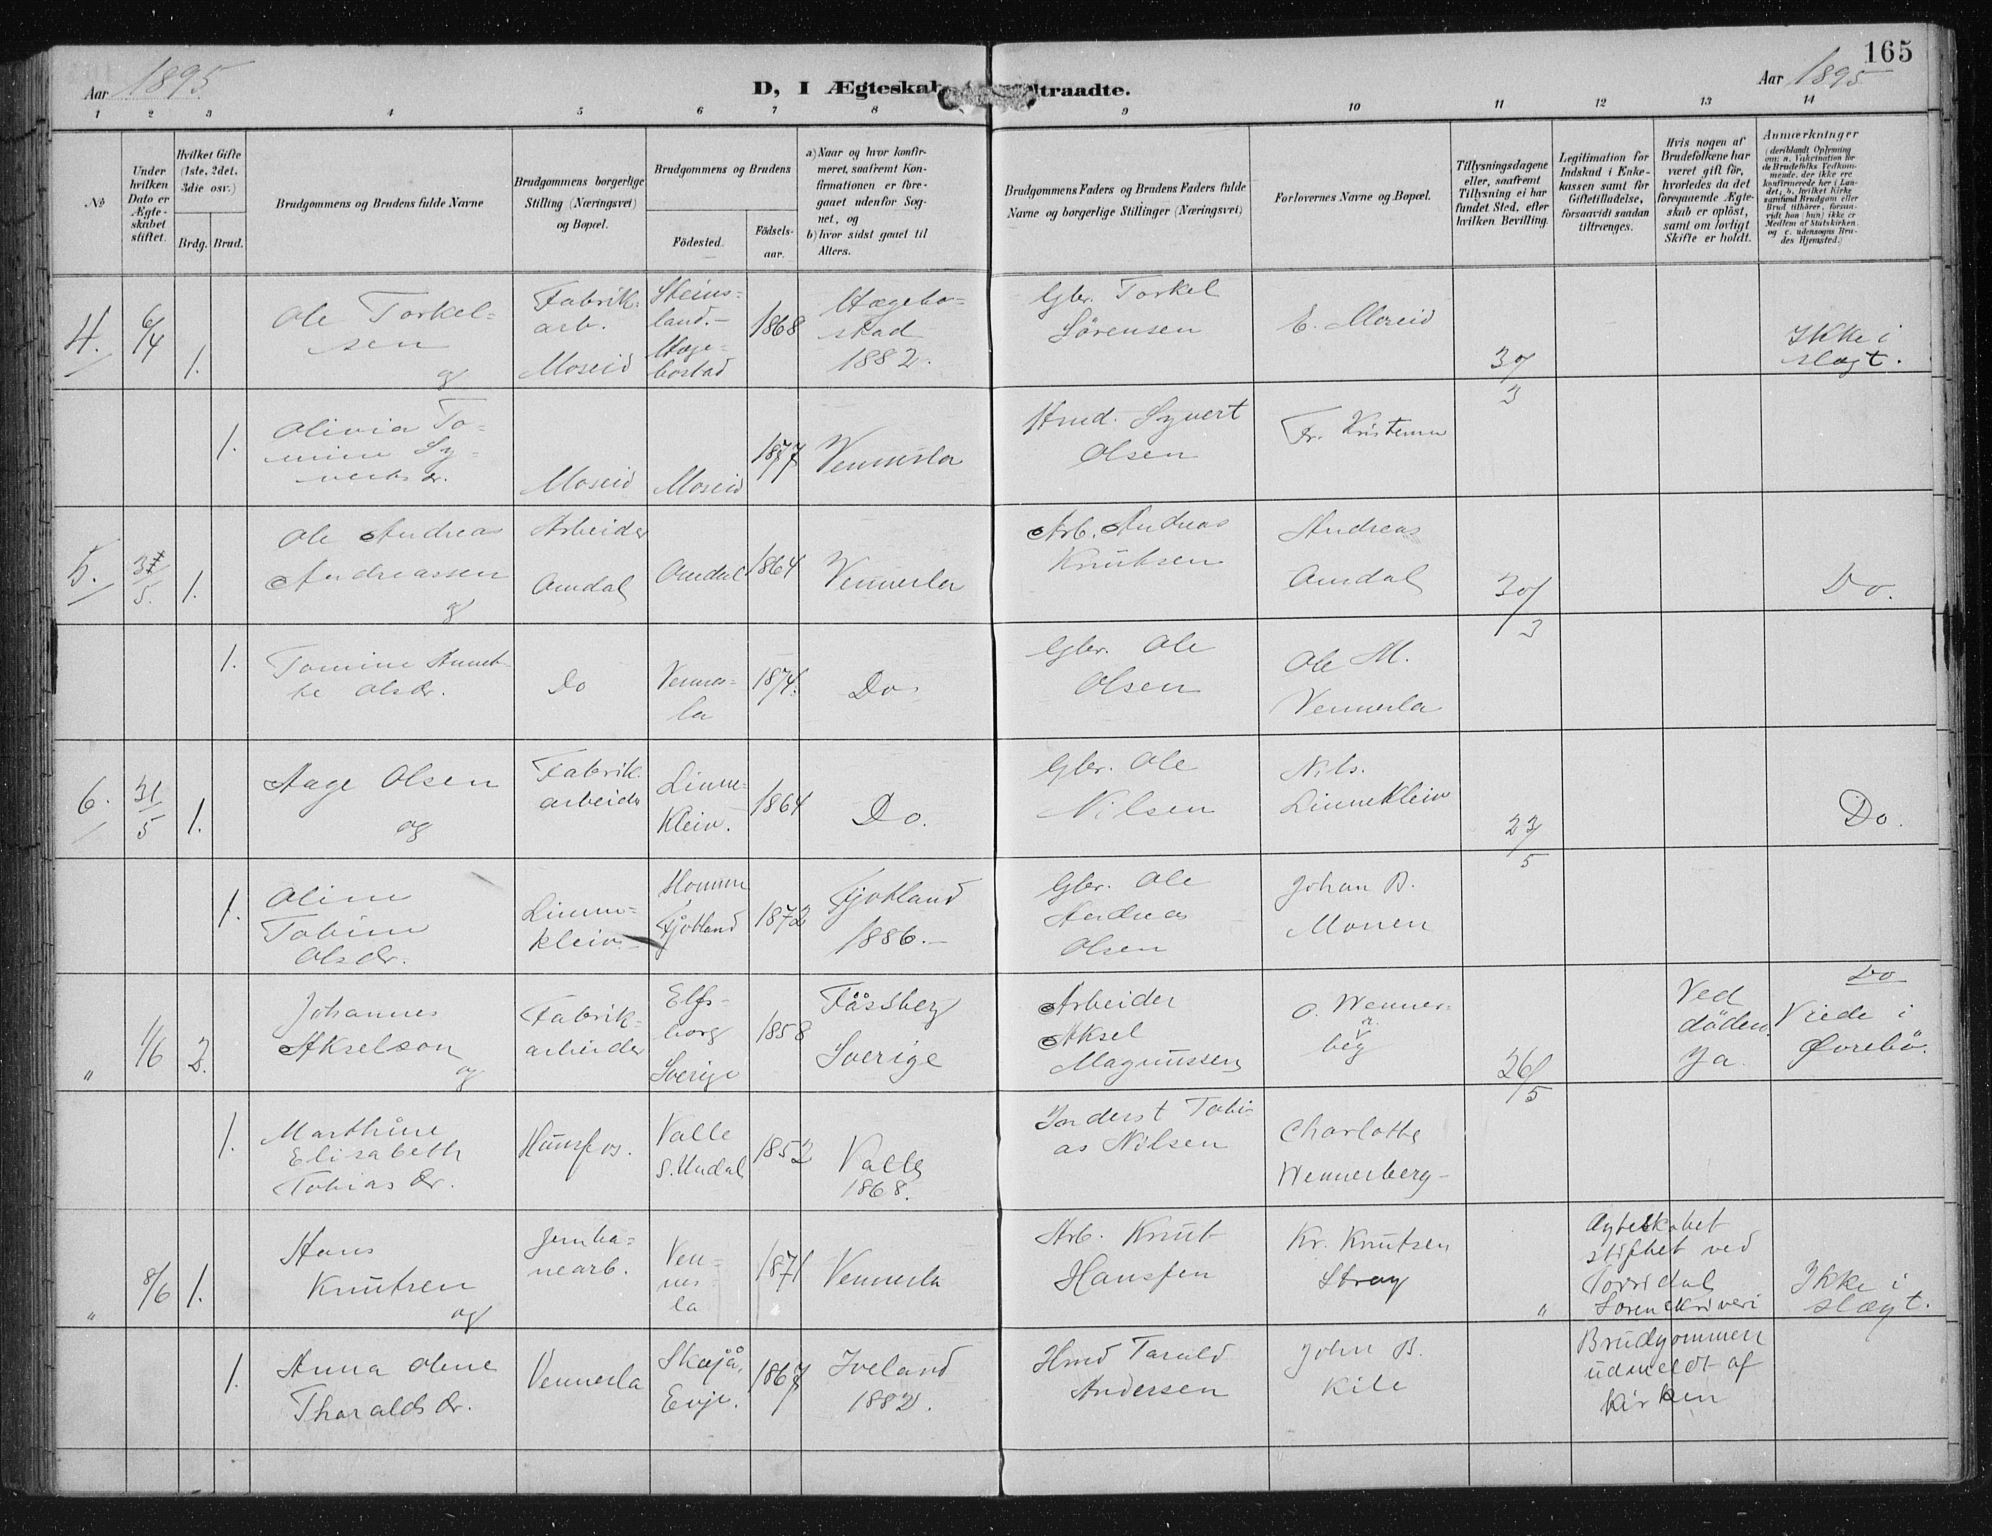 165
Aar 1895
D, I Ægteskab
ltraadte.
Aar 1895
1 2 3 4 5 6 7 8 9 10 11 12 13 14
№
Under hvilken Dato er Ægteskabet stiftet.
Hvilket Gifte (1ste, 2det, 3die osv.)
Brdg. Brud.
Brudgommens og Brudens fulde Navne
Brudgommens borgerlige Stilling (Næringsvei) og Bopæl.
Brudgommens og Brudens
Fødested.
Fødselsaar.
a) Naar og hvor konfirmeret, saafremt Konfirmationen er foregaaet udenfor Sognet, og
b) hvor sidst gaaet til Alters.
Brudgommens Faders og Brudens Faders fulde Navne og borgerlige Stillinger (Næringsvei)
Forlovernes Navne og Bopæl.
Tillysningsdagene eller, saafremt Tillysning ei har fundet Sted, efter hvilken Bevilling.
Legitimation for Indskud i Enkekassen samt for Giftetilladelse, forsaavidt saadan tiltrænges.
Hvis nogen af Brudefolkene har været gift før, hvorledes da det foregaaende Ægteskab er opløst, samt om lovligt Skifte er holdt.
Anmærkninger
(deriblandt Oplysning om: a. Vakcination for de Brudefolks Vedkommende, der ikke ere konfirmerede her i Landet, b. hvilket Kirkesamfund Brudgom eller Brud tilhører, forsaavidt han (hun) ikke er Medlem af Statskirken, og c. udensogns Brudes Hjemsted.)
4. 6/4 1. Ole Torkelsen og
Fabrikarb. Moseid
Steinsland. Hægebostad
1868
Hægebostad 1882.
Gbr. Torkel Sörensen
E. Moseid
3%
3
Ikke i slægt.
1. Olivia Tomine Syvertsdr.
Moseid
Moseid
1877
Vennesla
Hmd. Syvert Olsen
Fr. Kristensen
5. 31/5. 1. Ole Andreas Andreassen og
Arbeider Omdal
Omdal
1864
Vennesla
Arb. Andreas Knutsen
Andreas Omdal
30/3
Do.
1. Tomine Annethe Olsdr.
Do
Vennesla
1874.
Do.
Gbr. Ole Olsen
Ole M. Vennesla
6. 31/5 1. Aage Olsen og
Fabrikarbeider
Linnekleiv.
1864
Do.
Gbr. Ole Nilsen
Nils. Linnekleiv
23/5
Do.
1. Oline Tobine Olsdr.
Linnekleiv
Homme, Fjotland
1872
Fjotland 1886.
Gbr. Ole Andreas Olsen
Johan B. Monen
Do
" 1/6 2. Johannes Akselson og
Fabrikarbeider
Elfsborg Sverige
1858
Fåssberg Sverige
Arbeider Aksel Magnussen
O. Wennerbeg
r.
26/5
Ved döden. Ja.
Viede i Övrebö.
1. Marthine Elisabeth Tobiasdr.
Hunsfos.
Valle S. Undal
1852
Valle 1868.
Inderst Tobias Nilsen
Charlotte Wennerberg
" 8/6 1. Hans Knutsen og
Jernbanearb.
Vennesla
1871
Vennesla
Arb. Knut Hanssen
Kr. Knutsen Stray
"
Ægteskabet stiftet ved Torridal Sorenskriveri
Ikke i slægt.
1. Anna Oline Tharaldsdr.
Vennesla
Skajå, Evje.
1867
Iveland 1882.
Hmd Tarald Andersen
John B. Kile
Brudgommen udmeldt af kirken